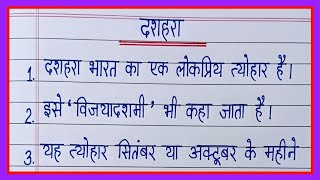 दशहरा
1. दशहरा भारत का एक लोकप्रिय त्योहार है।
2. इसे ‘विजयादशमी’ भी कहा जाता है।
3. यह त्योहार सितंबर या अक्टूबर के महीने